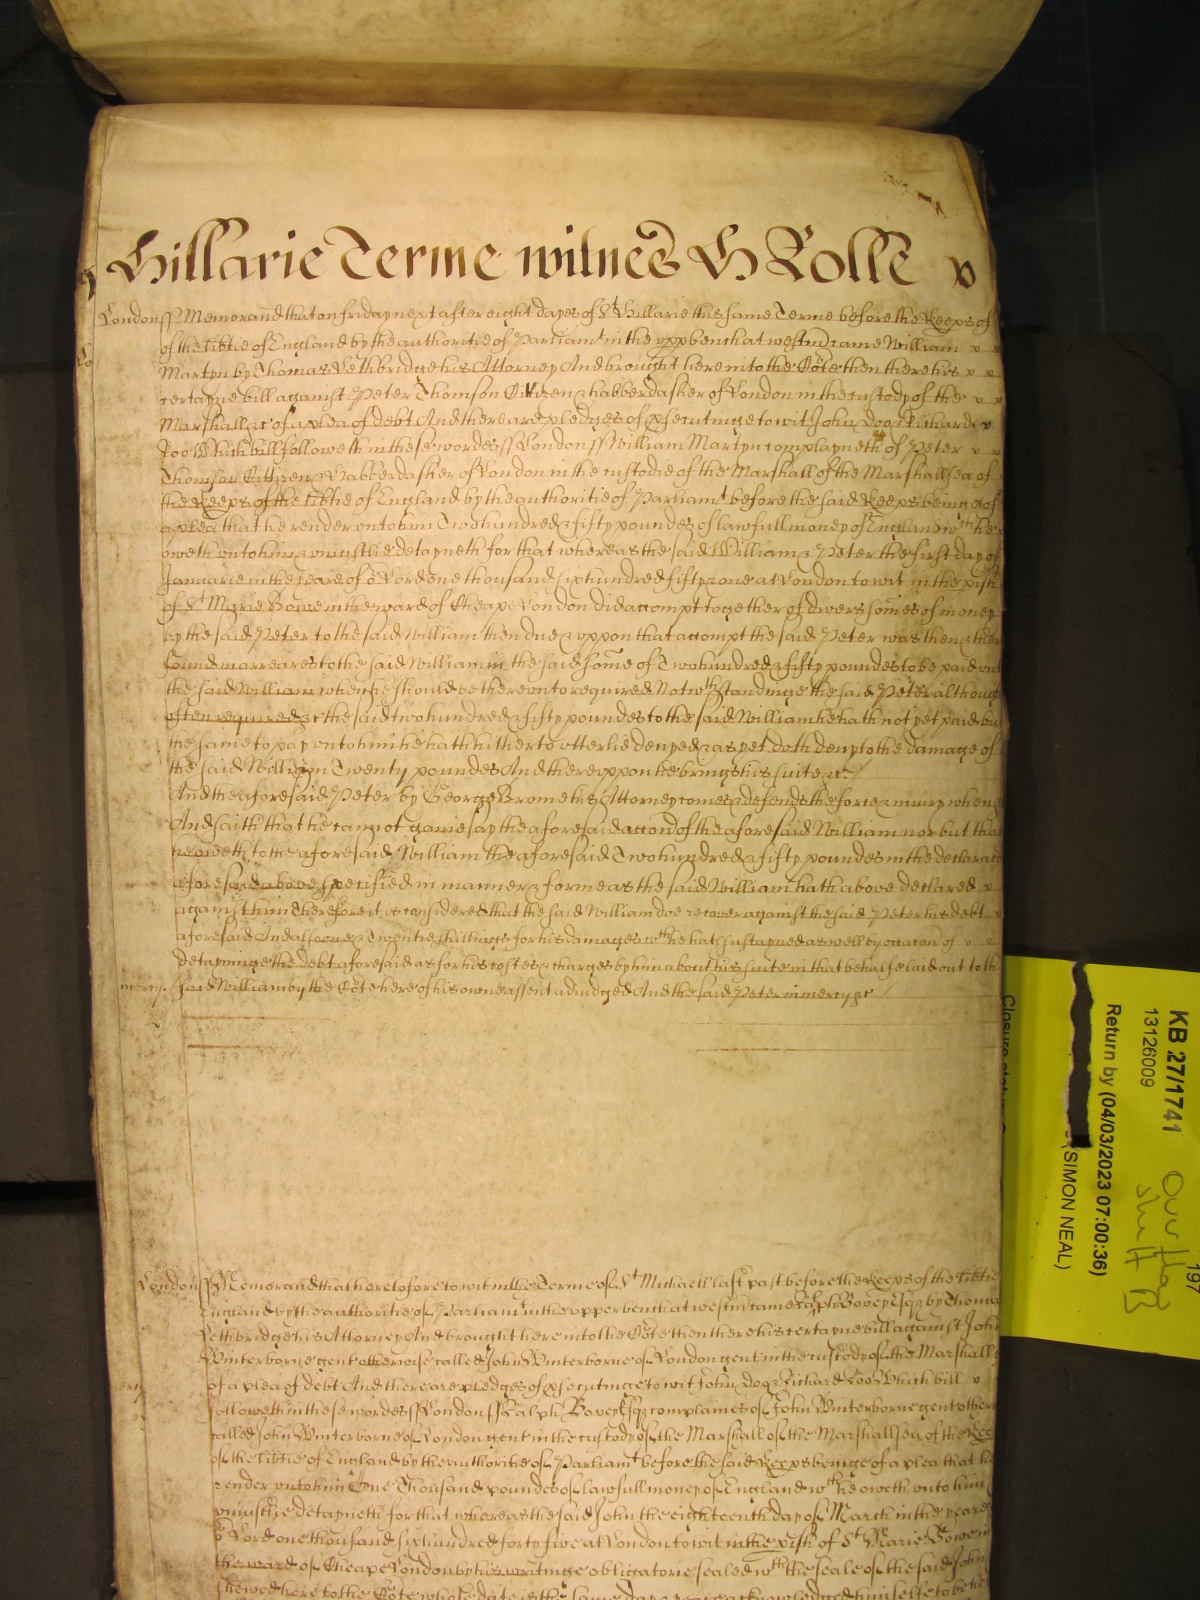 Hillarie Terme witnes H Rolle v
London ss Memorand that on friday next after eight dayes of St Hillarie this same Terme before the Keeps of
of the libtie of England by the authoritie of Parliamt in the upp bench at westm came William
Martyn by Thomas Lethbridge his Attorney And brought here into the Cote then there his
certayne bill against Peter Thomson Citizen & habberdasher of London in the custody of the
Marshall &c of a plea of debt And there are pledges of psecutinge to wit John Doo & Richard
Roo Which bill followeth in these wordes ss London ss William Martyn complayneth of Peter
Thomson Cittizen & Habberdasher of London in the custodie of the Marshall of the Marshallsea of
the Keeps of the libtie of England by the authoritie of Parliamt before the said Keeps beinge of
a plea that he render unto him Two hundred & fifty poundes of lawfull money of England wch he
oweth unto him & uniustlie detayneth for that whereas the said William & Peter the first day of
Januarie in the yeare of or Lord one thousand six hundred fifty & one at London to wit in the pish
of St Marie Bowe in the ward of Cheape London did accompt together of divers somes of money
by the said Peter to the said William then due & uppon that accompt the said Peter was then & there
found in arreares to the said William in the said some of Two hundred & fifty poundes to be paid unto
the said William when he should be thereunto required Notwthstandinge the said Peter although
often required &c the said two hundred & fifty poundes to the said William he hath not yet paid but
the same to pay unto him he hath hitherto utterlie denyed & as yet doth deny to the damage of
the said William Twenty poundes And thereuppon he brings his suite &c
And the aforesaid Peter by George Brome his Attorney comes & defends the force & iniury when &c
And saith that he cannot gainesay the aforesaid accon of the aforesaid William nor but that
he oweth to the aforesaid William the aforesaid Two hundred & fifty poundes in the declarat
aforesaid above specified in manner & forme as the said William hath above declared
against him Therefore it is considered that the said William doe recover against the said Peter his debt
aforesaid And alsoe Twentie shillings for his damages wch he hath sustayned as well by occacon of
detayninge the debt aforesaid as for his costes & charges by him about his suite in that behalfe laid out to the
mercy. said William by the Cote here of his owne assent adiudged And the said Peter in mercy &c
London ss Memorand that heretofore to wit in the Terme of St Michaell last past before the Keeps of the libtie
England by the authoritie of Parliamt in the upper bench at westm came Ralph Bovey Esqr by Thomas
Lethbridge his Attorney And brought here into the Cote then there his certayne bill against John
Winterborne gent otherwise called John Winterborne of London gent in the custody of the Marshall
of a plea of debt And there are pledges of psecutinge to wit John Doo & Richard Roo Which bill
followeth in these wordes ss London ss Ralph Bovey Esqr complaines of John Winterborne gent otherw
called John Winterborne of London gent in the custody of the Marshall of the Marshallsea of the Keeps
of the libtie of England by the authoritie of Parliamt before the said Keeps beinge of a plea that he
render unto him One Thousand poundes of lawfull money of England wch he oweth unto him
uniustlie detayneth for that whereas the said John the eighteenth day of March in the yeare
or Lord one thousand six hundred forty five at London to wit in the pish of St Marie Bowe in
the ward of Cheape London by his writinge obligatorie sealed wth the seale of the said John
shewed here to the Cote whose date is the same day & yeare acknowledged himselfe to be
KB 27/1741
13126009
Return by (04/03/2023 07:00:36)
(SIMON NEAL)
197